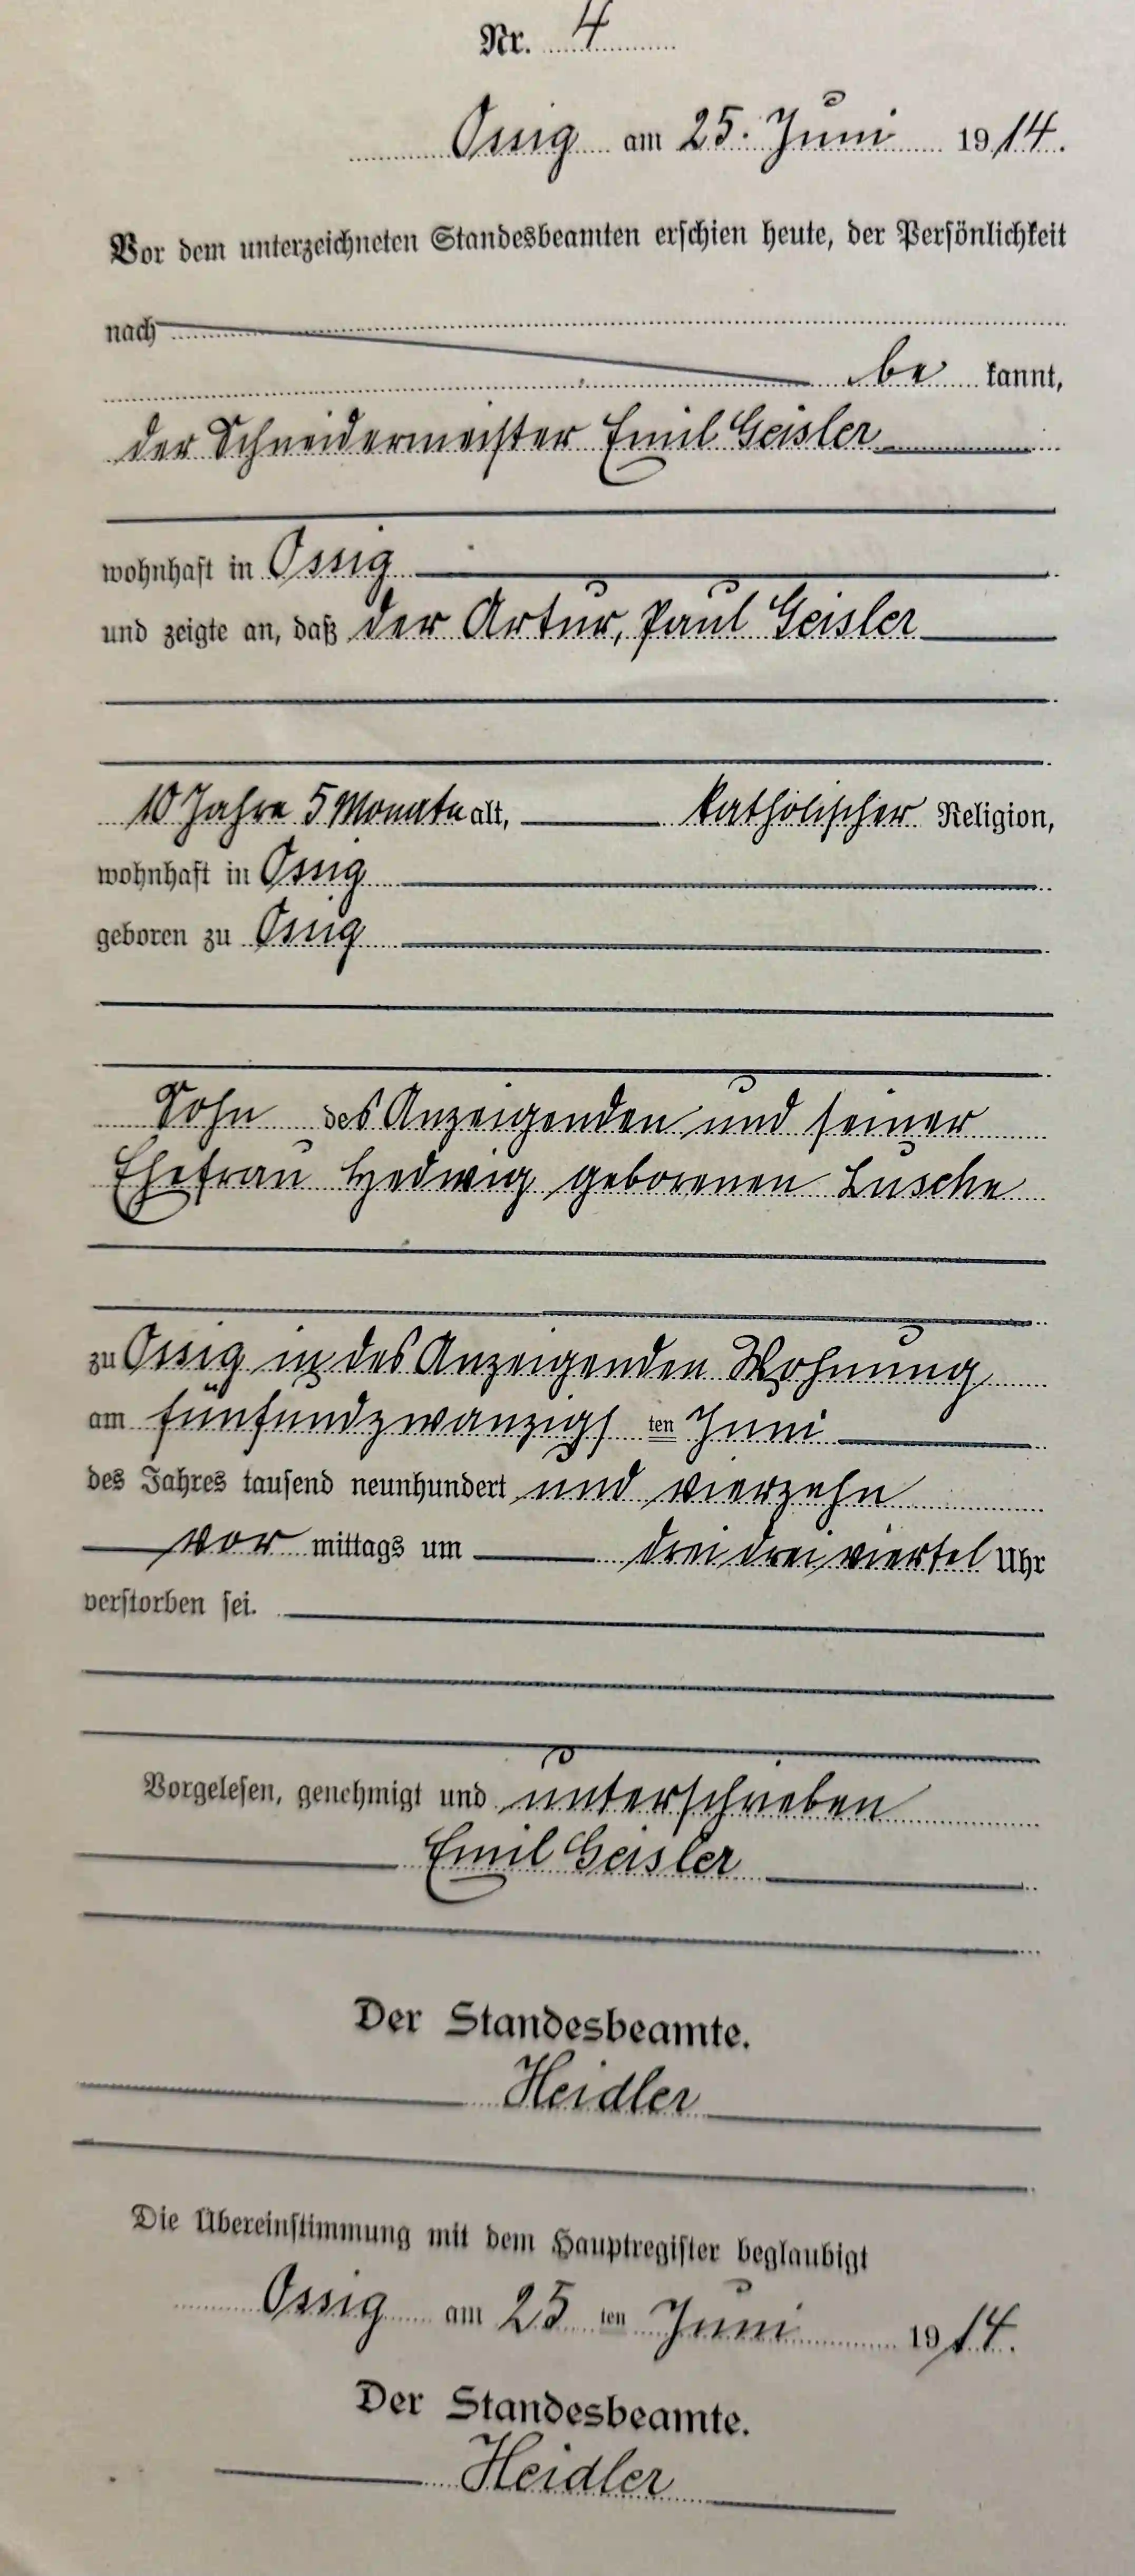 Nr. 4
Ossig am 25. Juni 1914.
Vor dem unterzeichneten Standesbeamten erschien heute, der Persönlichkeit
nach
be kannt,
der Schneidermeister Emil Geisler
wohnhaft in Ossig
und zeigte an, daß der Artur, Paul Geisler
10 Jahre 5 Monate alt, katholischer Religion,
wohnhaft in Ossig
geboren zu Ossig
Sohn des Anzeigenden und seiner
Ehefrau Hedwig geborenen Lusche
zu Ossig in des Anzeigenden Wohnung
am fünfundzwanzigs ten Juni
des Jahres tausend neunhundert und vierzehn
vor mittags um drei drei viertel Uhr
verstorben sei.
Vorgelesen, genehmigt und unterschrieben
Emil Geisler
Der Standesbeamte.
Heidler
Die Übereinstimmung mit dem Hauptregister beglaubigt
Ossig am 25 ten Juni 1914.
Der Standesbeamte.
Heidler